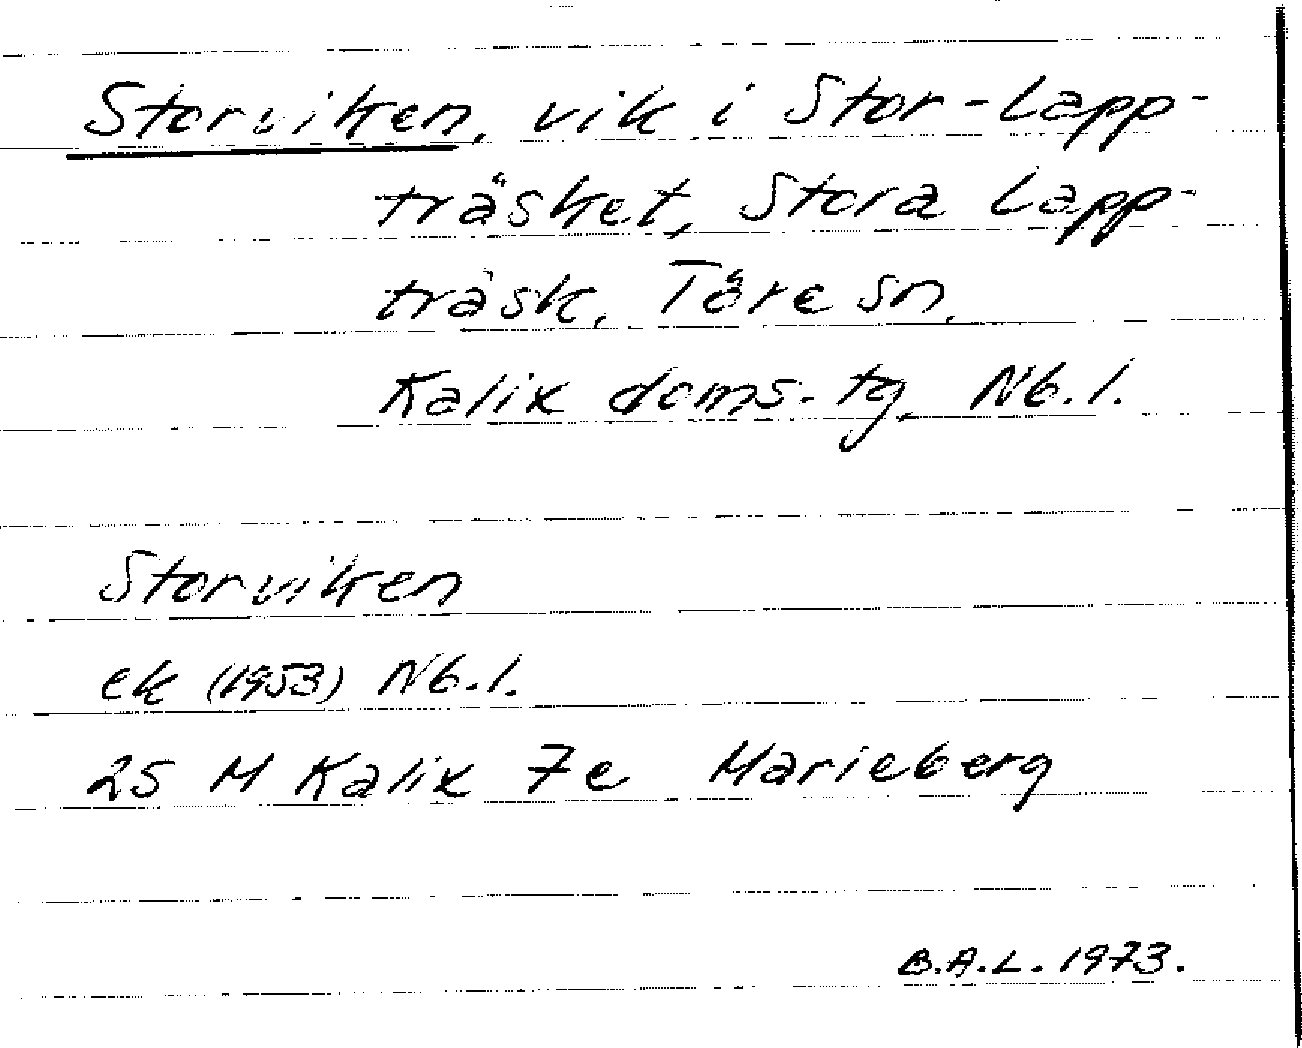 Storviken, vik i Stor-Lapp-
träsket, Stora Lapp-
träsk, Töre sn,
Kalix doms. tg. Nb. l.
Storviken
ek (1953) Nb. l.
25 M Kalix 7e Marieberg
B.A.L. 1973.